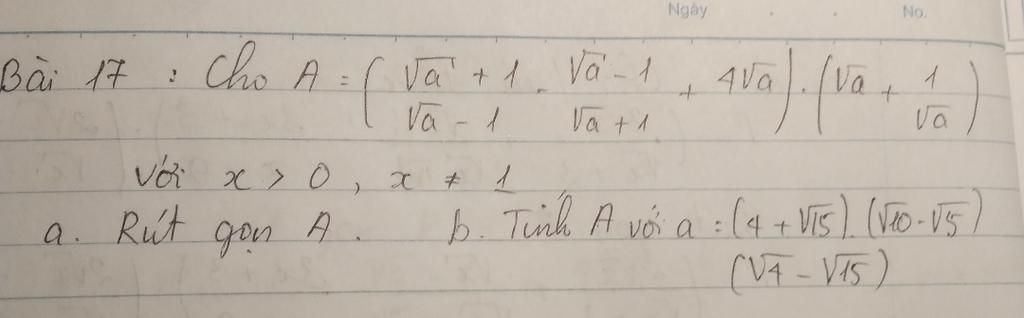 Ngày . . No.
Bài 17 : Cho A = ( (√a + 1)/(√a - 1) - (√a - 1)/(√a + 1) + 4√a ) . ( √a + 1/√a )
Với x > 0 , x ≠ 1
a. Rút gọn A . b. Tính A với a = (4 + √15) . (√10 - √5)
(√4 - √15)